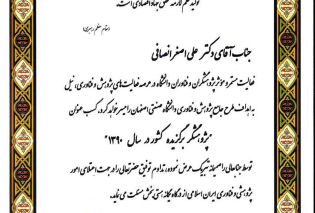 تولید علم لازمه تحقق جهاد اقتصادی است.
(مقام معظم رهبری)
جناب آقای دکتر علی اصغر انصافی
فعالیت مستمر و موثر پژوهشگران و فناوران دانشگاه در عرصه فعالیت‌های پژوهش و فناوری، نیل
به اهداف طرح جامع پژوهش و فناوری دانشگاه صنعتی اصفهان را میسر خواهد کرد. کسب عنوان
"پژوهشگر برگزیده کشور در سال ۱۳۹۰"
توسط جنابعالی را صمیمانه تبریک عرض نموده، تداوم توفیق حضرتعالی را در جهت اعتلای امور
پژوهشی و فناوری ایران اسلامی از درگاه یگانه هستی بخش مسئلت می نماید.